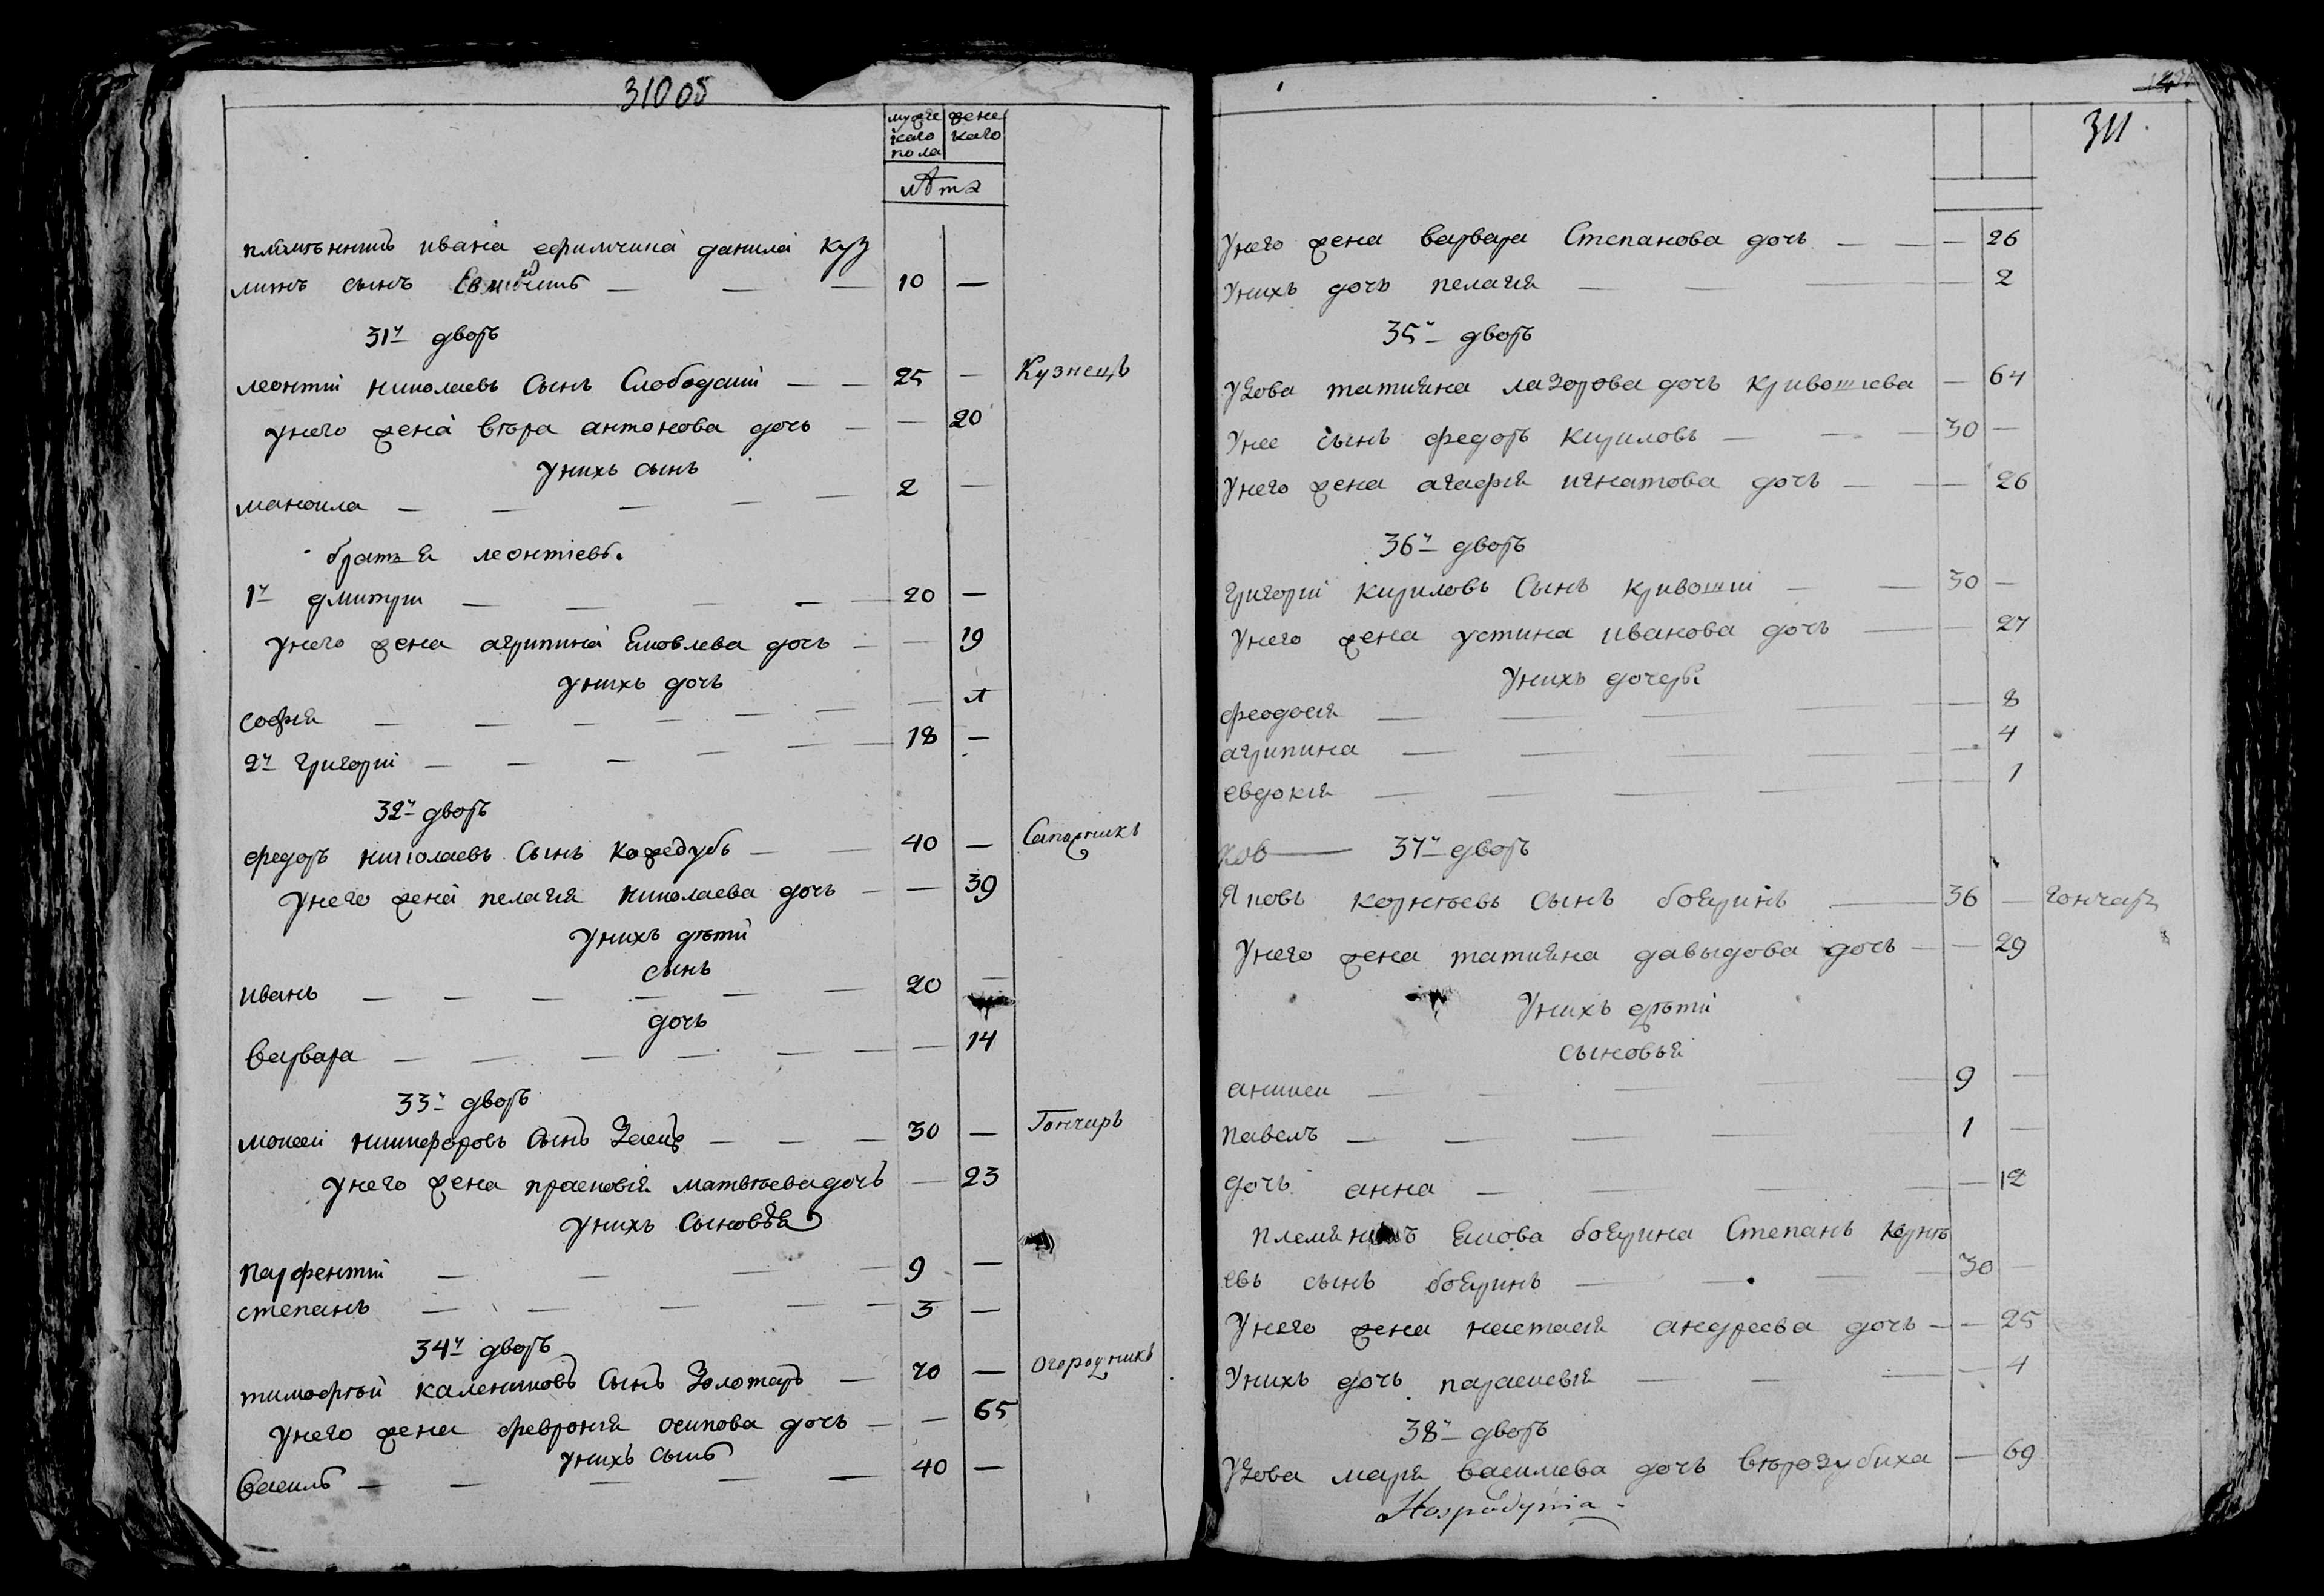 310 об
мужес женс
каго каго
пола
лѣта
племѣнникъ ивана ефимчина данила куз
минъ сынъ 10 —
31й дворъ
леонтій николаевъ Сынъ Слободский — — 25 — Кузнецъ
унего жена вѣра антонова дочь — — 20
унихъ сынъ
маноила — — — — — 2 —
братья леонтіевы
1й дмитри — — — — — 20 —
унего жена агрипина Яковлева дочь — — 19
унихъ дочь
софия — — — — — — — 1
2й Григорій — — — — — — 18 —
32й дворъ
федоръ николаевъ Сынъ Кожедубъ — — 40 — Сапожникъ
унего жена пелагия николаева дочь — — 39
унихъ дѣти
сынъ
иванъ — — — — — — 20 —
дочь
варвара — — — — — — — 14
33й дворъ
моисей никифоровъ Сынъ Заецъ — — — 30 — Гончаръ
унего жена прасковія матвѣева дочь — 23
унихъ Сыновья
парфентій — — — — 9 —
степанъ — — — — — 3 —
34й дворъ
тимофѣй калениковъ Сынъ Золотаръ — 70 — огородникъ
унего жена феврония осипова дочь — — 65
унихъ сынъ
василь — — — — — 40 —
311
унего жена варвара Степанова дочь — — — 26
унихъ дочь пелагия — — — 2
35й дворъ
удова татияна лазорова дочь кривошиева — 64
унее сынъ федоръ кириловъ — — — 30 —
унего жена агафия игнатова дочь — — — 26
36й дворъ
григорій кириловъ Сынъ кривошій — — 30 —
унего жена устина иванова дочь — — 27
унихъ дочеры
феодосия — — — — — 8
агрипина — — — — — 4
евдокия — — — — — — 1
37й дворъ
Яковъ корнѣевъ сынъ бояринъ — 36 — гончаръ
унего жена татияна давыдова дочь — — 29
унихъ дѣти
сыновья
аникеи — — — — 9 —
павелъ — — — — 1 —
дочь анна — — — — — 12
племяникъ Якова боярина Степанъ корнѣ
евъ сынъ бояринъ — — — 30 —
унего жена настасия андреева дочь — — 25
унихъ дочь параскевія — — — — 4
38й дворъ
удова мария василиева дочь вѣрозубиха — 69
Hospodynia